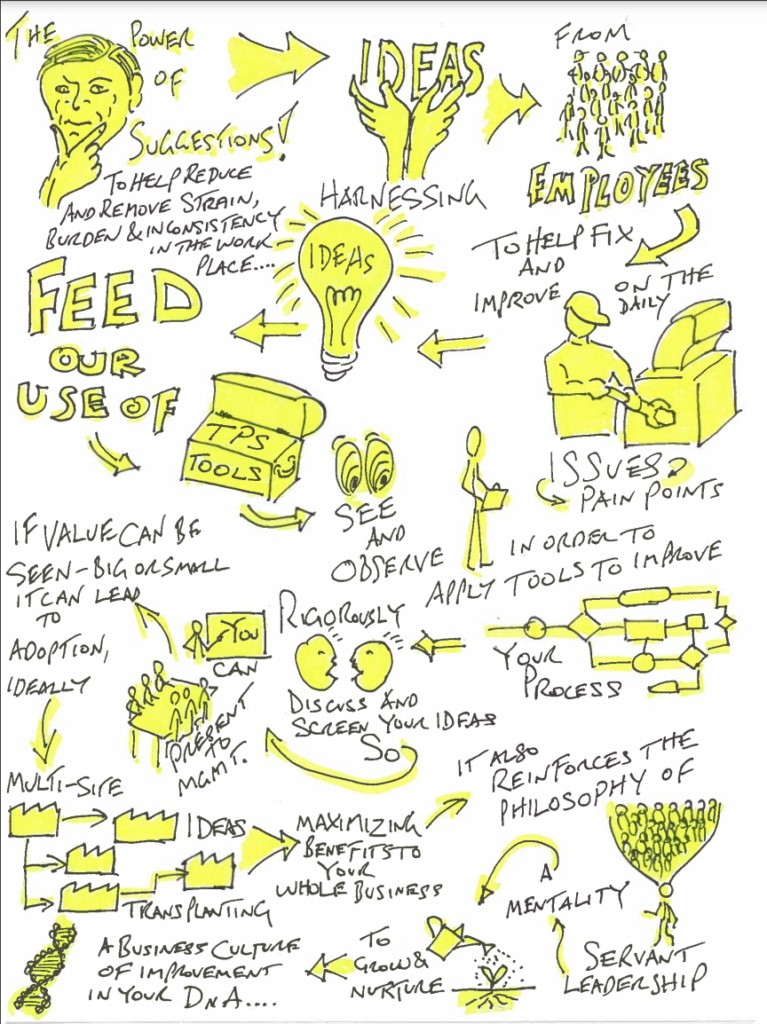 THE POWER
OF
SUGGESTIONS!
TO HELP REDUCE
AND REMOVE STRAIN,
BURDEN & INCONSISTENCY
IN THE WORK
PLACE....
IDEAS
HARNESSING
FROM
EMPLOYEES
TO HELP FIX
AND
IMPROVE
ON THE
DAILY
ISSUES &
PAIN POINTS
IDEAS
FEED
OUR
USE OF
TPS
TOOLS
SEE
AND
OBSERVE
IN ORDER TO
APPLY TOOLS TO IMPROVE
YOUR
PROCESS
RIGOROUSLY
DISCUSS AND
SCREEN YOUR IDEAS
SO
YOU
CAN
PRESENT
TO
MGMT.
IF VALUE CAN BE
SEEN - BIG OR SMALL
IT CAN LEAD
TO
ADOPTION,
IDEALLY
MULTI-SITE
IDEAS
TRANSPLANTING
MAXIMIZING
BENEFITS TO
YOUR
WHOLE BUSINESS
IT ALSO
REINFORCES THE
PHILOSOPHY OF
SERVANT
LEADERSHIP
A
MENTALITY
TO
GROW &
NURTURE
A BUSINESS CULTURE
OF IMPROVEMENT
IN YOUR DNA....